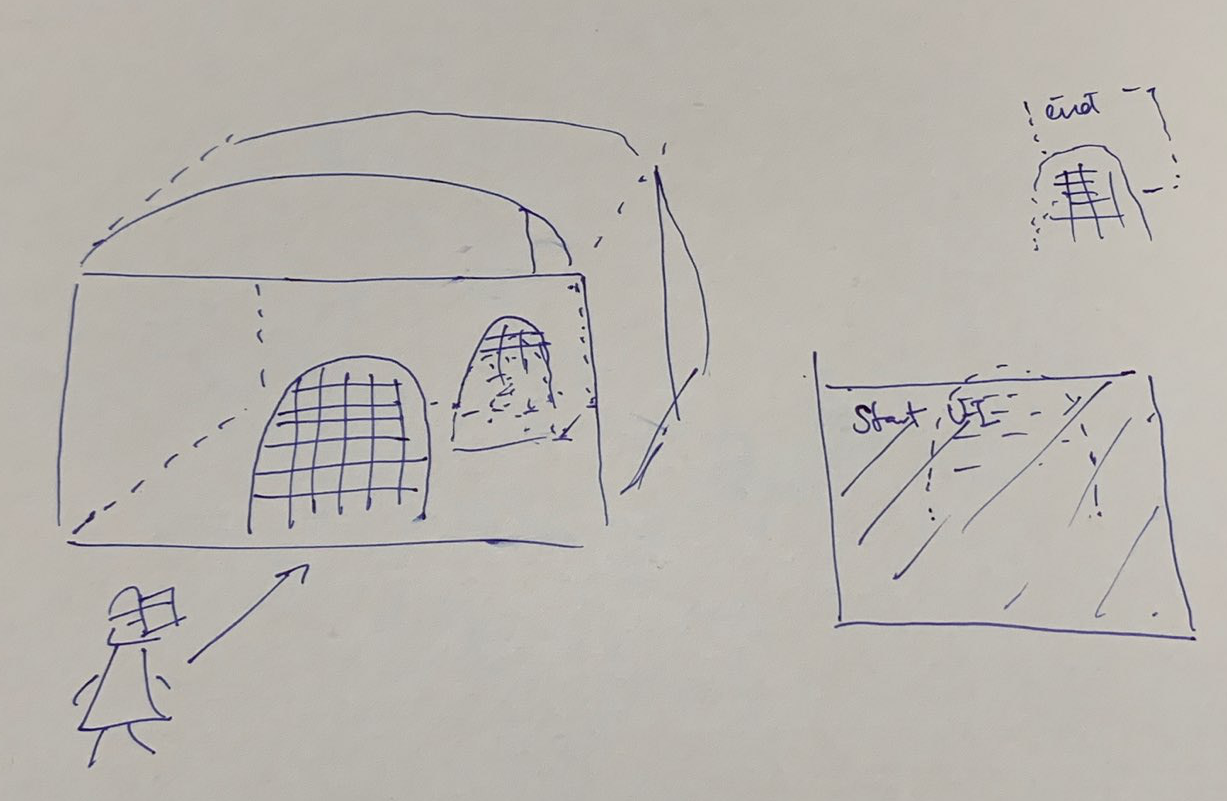 end
Start UI